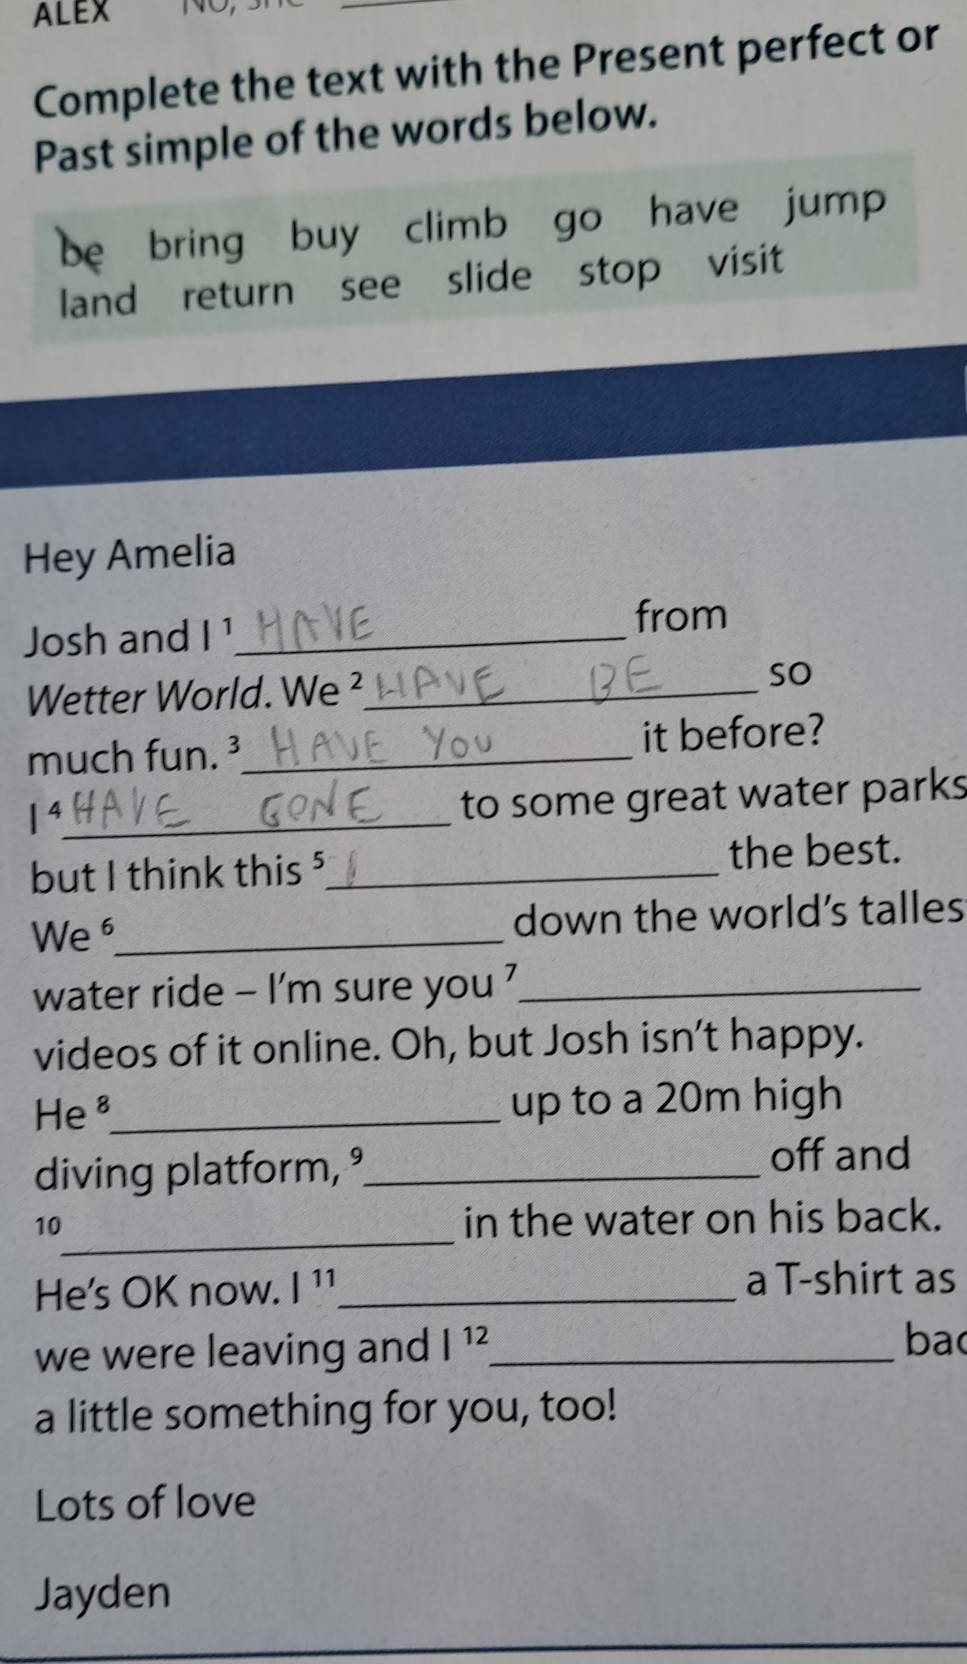 ALEX
Complete the text with the Present perfect or
Past simple of the words below.
be bring buy climb go have jump
land return see slide stop visit
Hey Amelia
Josh and I ¹ HAVE from
Wetter World. We ² HAVE BE so
much fun. ³ HAVE YOU it before?
I ⁴ HAVE GONE to some great water parks
but I think this ⁵ the best.
We ⁶ down the world's talles
water ride – I'm sure you ⁷
videos of it online. Oh, but Josh isn't happy.
He ⁸ up to a 20m high
diving platform, ⁹ off and
10 in the water on his back.
He's OK now. I ¹¹ a T-shirt as
we were leaving and I ¹² bac
a little something for you, too!
Lots of love
Jayden